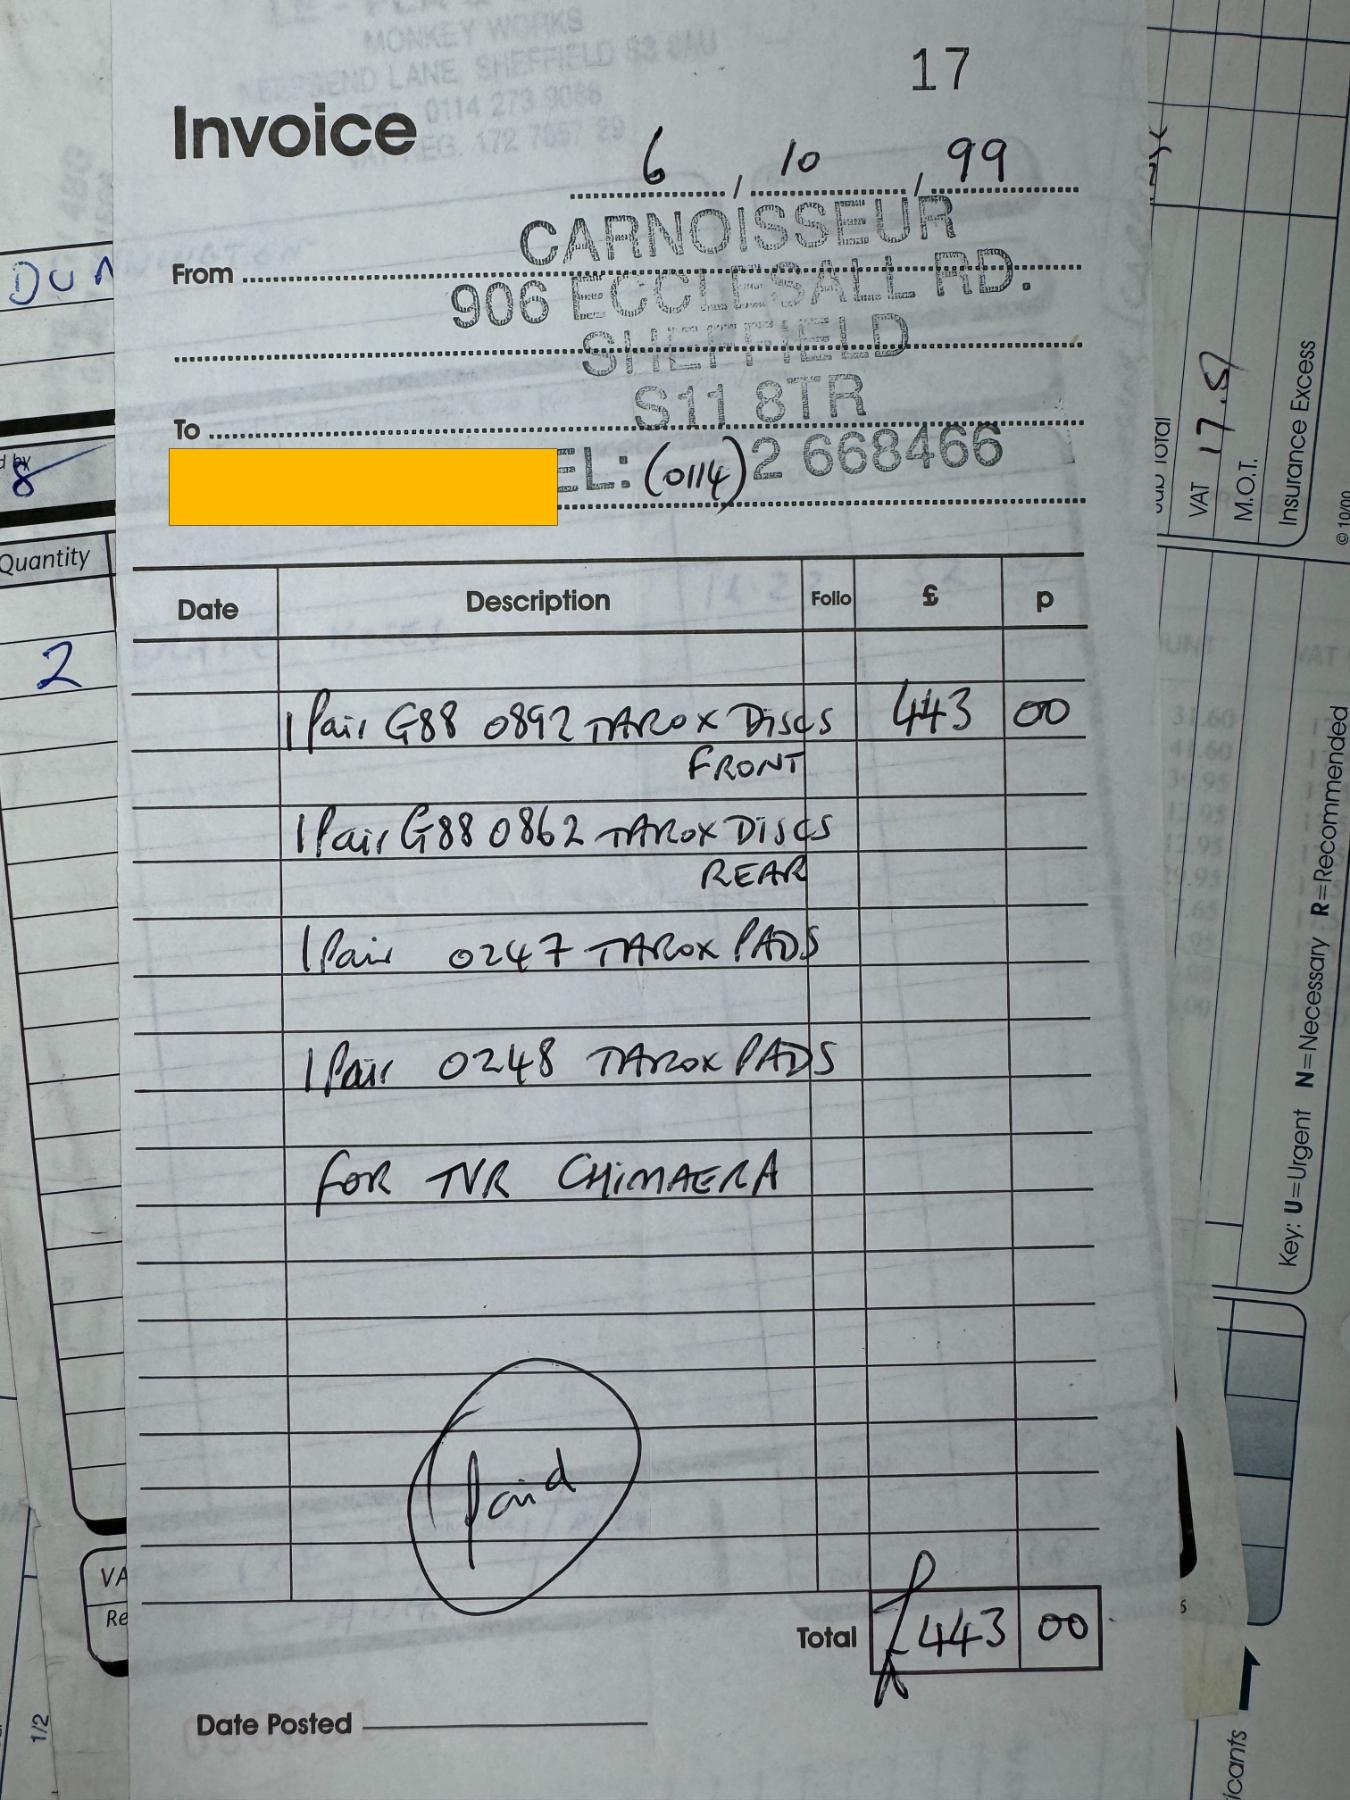 MONKEY WORKS
NEEPSEND LANE, SHEFFIELD S3 8AU
TEL. 0114 273 9088
VAT REG. 172 7657 29
17
Invoice
6, 10, 99
CARNOISSEUR
From
906 ECCLESALL RD.
SHEFFIELD
S11 8TR
To
EL: (0114) 2 668466
Date Description Folio £ p
1 Pair G88 0892 TAROX Discs 443 00
FRONT
1 Pair G88 0862 TAROX Discs
REAR
1 Pair 0247 TAROX PADS
1 Pair 0248 TAROX PADS
FOR TVR CHIMAERA
Paid
Total £443 00
Date Posted
DUN
8
Quantity
2
VA
Re
1/2
Sub Total
VAT 17.5
M.O.T.
Insurance Excess
© 10/00
Key: U=Urgent N=Necessary R=Recommended
icants